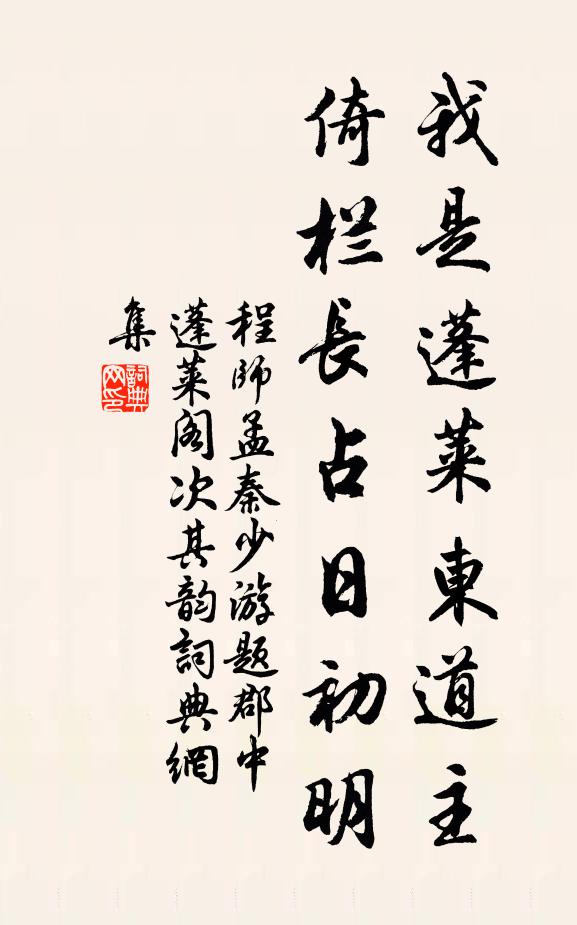 我是蓬莱東道主
倚栏長占日初明
程師孟秦少游題郡中
蓬莱阁次其韵詞典網
集
詞典
网印